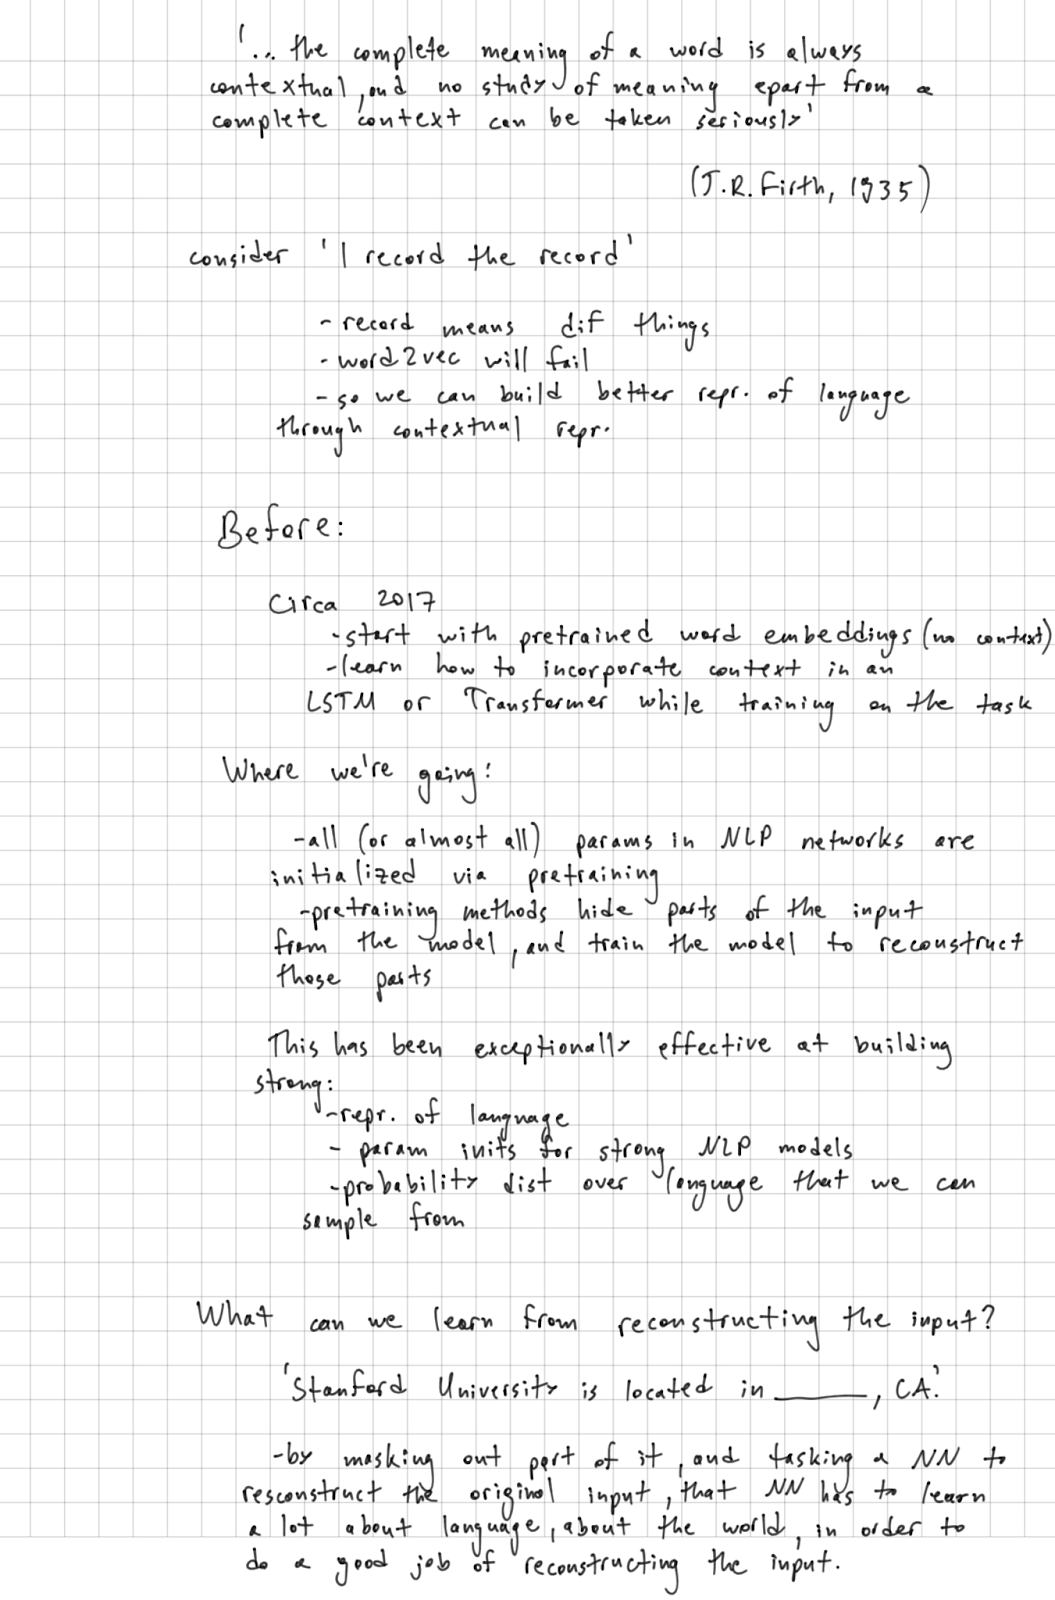 '... the complete meaning of a word is always
contextual, and no study of meaning apart from a
complete context can be taken seriously'
(J.R. Firth, 1935)
consider 'I record the record'
- record means dif things
- word2vec will fail
- so we can build better repr. of language
through contextual repr.
Before:
Circa 2017
-start with pretrained word embeddings (no context)
-learn how to incorporate context in an
LSTM or Transformer while training on the task
Where we're going:
-all (or almost all) params in NLP networks are
initialized via pretraining
-pretraining methods hide parts of the input
from the model, and train the model to reconstruct
those parts
This has been exceptionally effective at building
strong:
-repr. of language
- param inits for strong NLP models
-probability dist over language that we can
sample from
What can we learn from reconstructing the input?
'Stanford University is located in ______, CA.'
-by masking out part of it, and tasking a NN to
resconstruct the original input, that NN has to learn
a lot about language, about the world, in order to
do a good job of reconstructing the input.